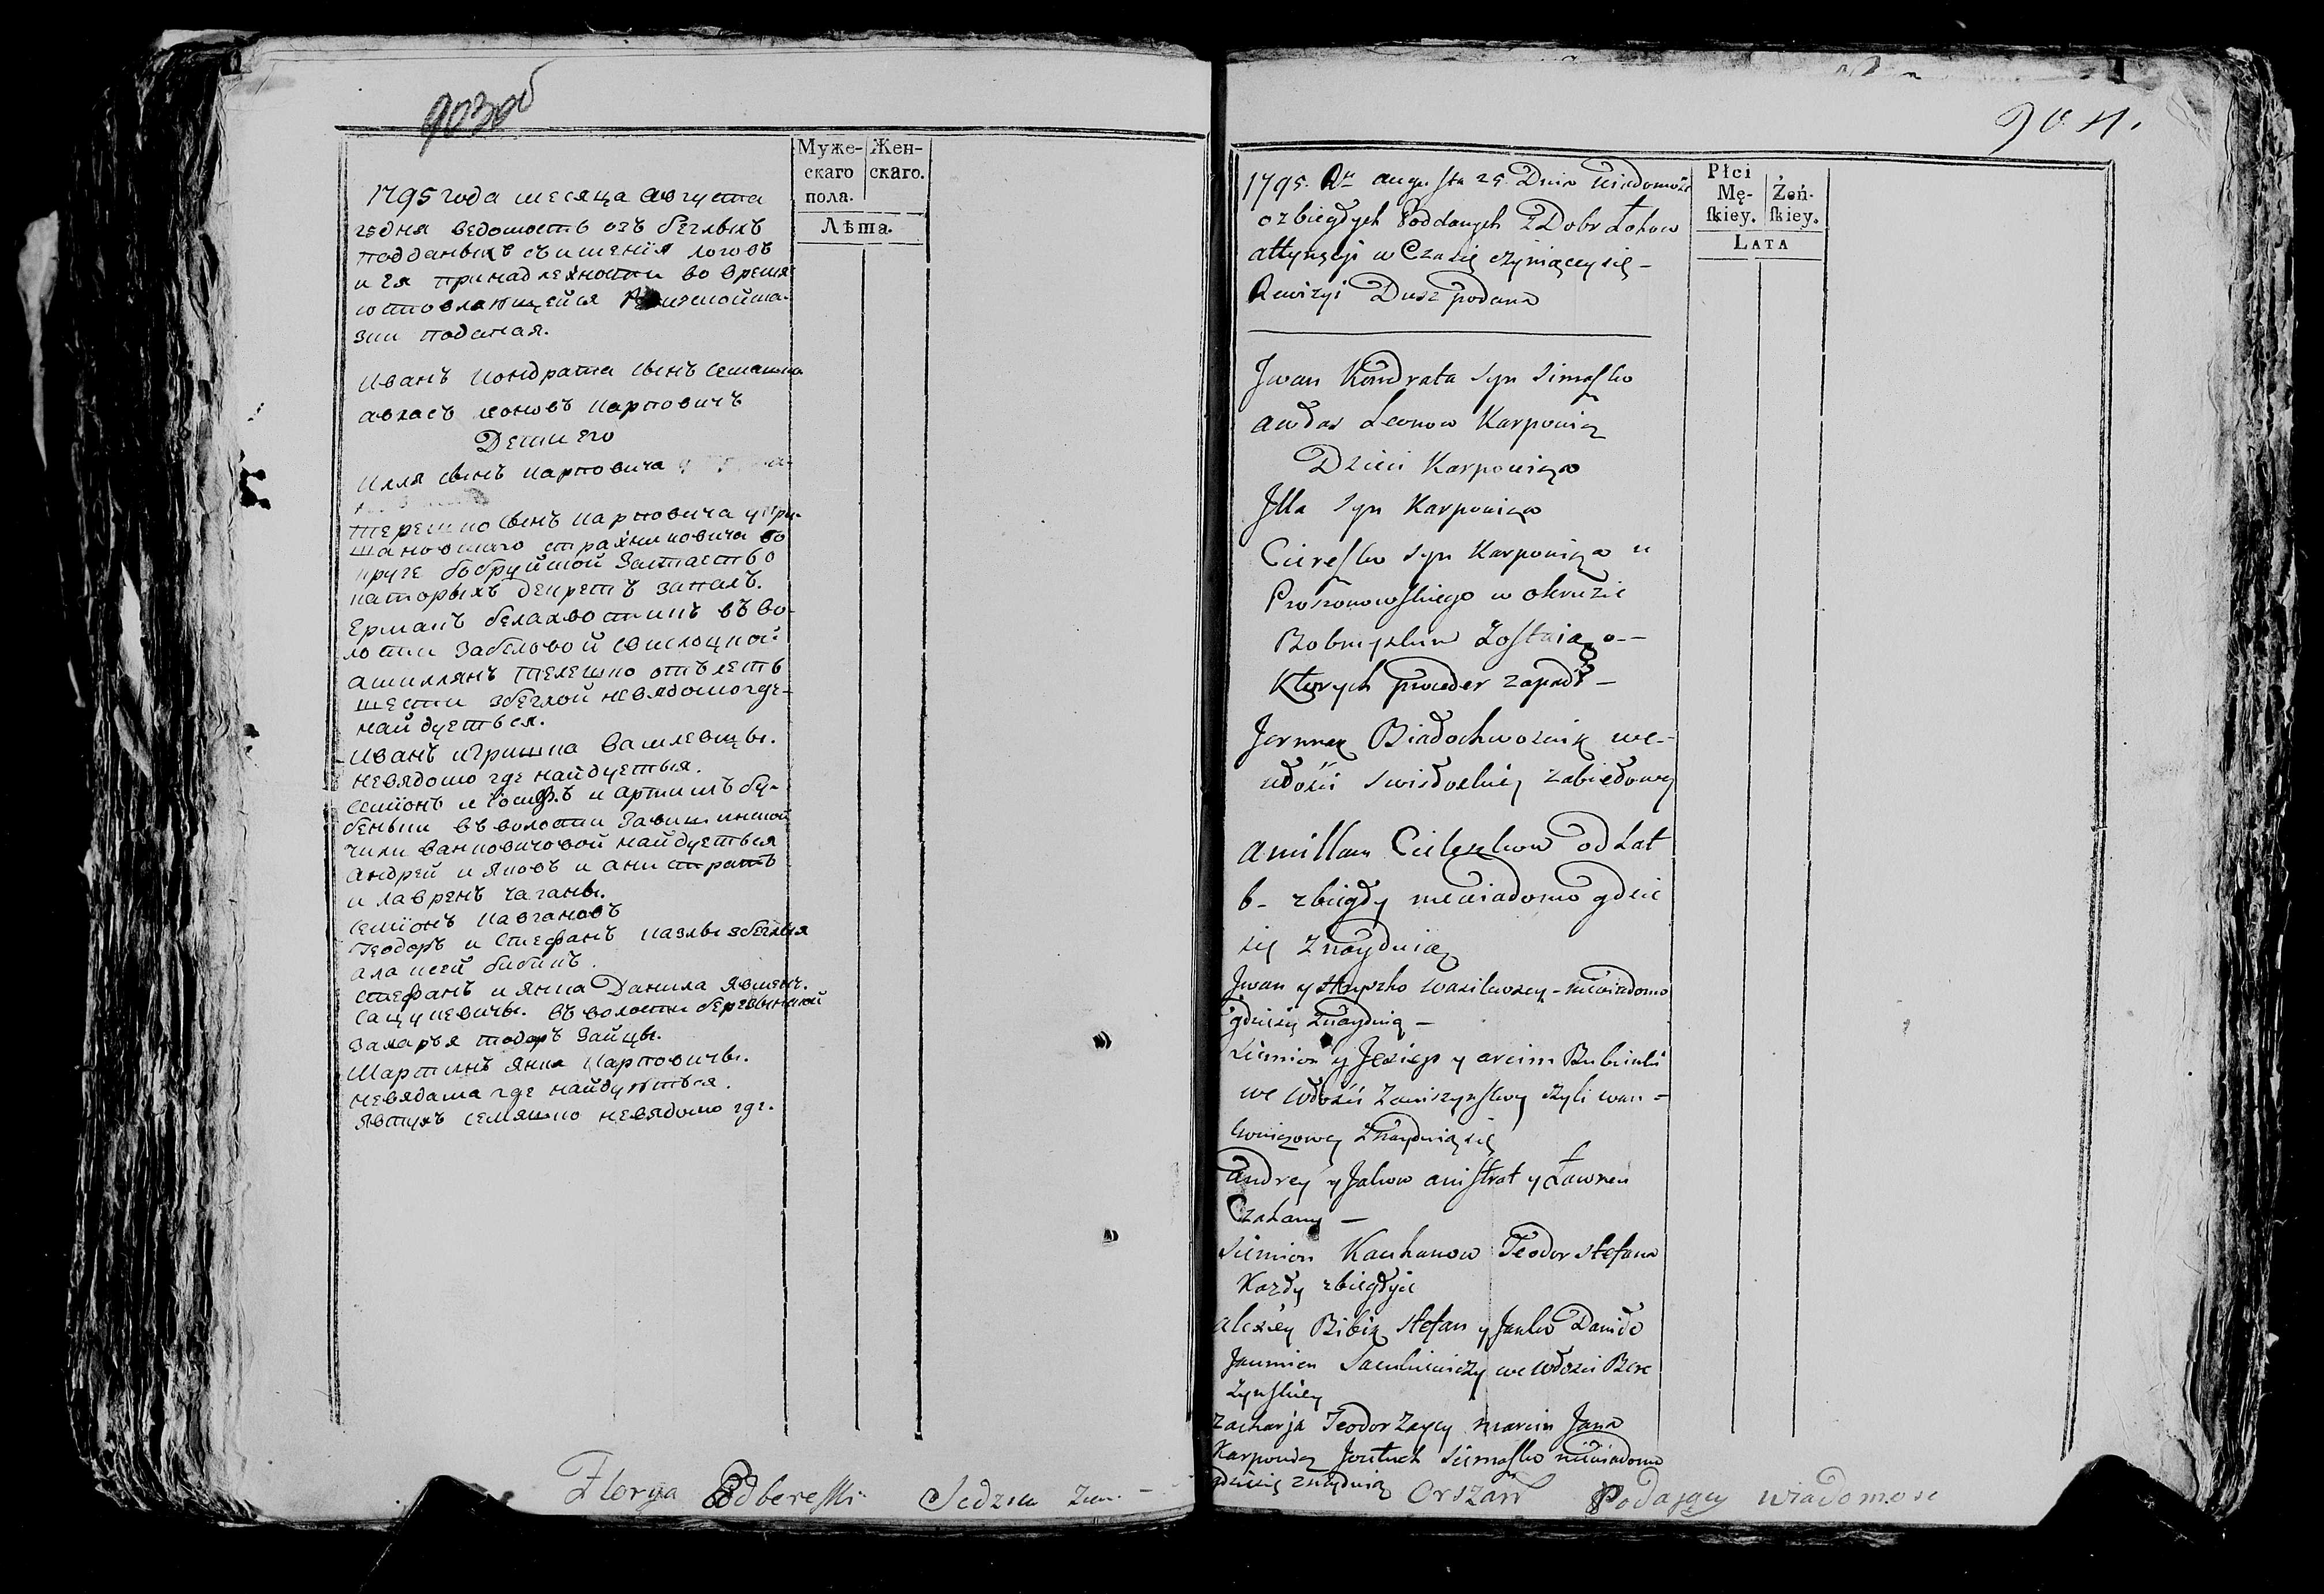 903 об
Муже-
скаго
пола.
Жен-
скаго.
Лѣта.
1795 года месяца августа
25 дня ведомость озъ беглыхъ
подданыхъ съ имения логовъ
и Ея принадлежности во время
зии поданая.
Иванъ Кондрата сынъ семашка
авласъ леоновъ карповичъ
Дети его
Илля сынъ карповича
терешко сынъ карповича у при-
круге бобруйской Застаетьо
каторыхъ декретъ запалъ.
Ерманъ белахвостикъ въ во-
лости забеловой свислоцкой
амиллянъ телешко отъ леть
шести збеглой невядомо где-
найдуеться.
Иванъ и Гришка василевцы.
невядомо где найдуеться.
семионъ и Иосифъ и артимъ бу-
беньки въ волости Завишинской
чили ванковичовой найдуеться
андрей и яковъ и анистратъ
и лавренъ чаганы.
семионъ кавгановъ
теодоръ и стефанъ казлы збеглыя
алексей бибикъ.
стефанъ и янка Данила явмень.
сацукевичы. въ волости березынской
захарья тодоръ зайцы.
Мартинъ янка карповичы.
невядома где найдуються.
явтухъ семяшко невядомо где.
Florya Odbereski Sedzia Ziem.
904.
Płci
Mę-
skiey.
Żeń-
skiey.
LATA
1795. Ru augusta 25 Dnia Wiadomość
o zbiegłych Poddanych z Dobr Łohow
attynęcyi w Czasię czyniącey się -
Rewizyi Dusz podana
Jwan Kondrata syn Simaszko
awłas Leonow Karpowicz
Dzieci Karpowicza
Jlla syn Karpowicza
Cireszko syn Karpowicza u
w okruzie
Bobruyskim Zostaią
Ktorych proceder zapadł -
Jermak Białochwościk we-
włości swisłockiey zabiełowey
amillan Cieleszkow od Lat
6 - zbiegły niewiadomo gdzie
się Znayduią
Jwan y Hryszko wasilewscy - niewiadomo
gdzie się Znayduią -
Siemion y Jeziep y arcim Bubieńki
we włości Zawiszynskiey czyli wan -
kowiczowey Znayduią się
andrey y Jakow anistrat y Ławren
Czahany -
Siemion Kauhanow Teodor Stefana
Kozły zbiegłyie
alexiey Bibik Stefan y Janko Daniło
Jaumien Sacukiewiczy we włości Bere
zynskiey
Zacharja Teodor Zaycy Marcin Jana
Karpowicz Jeutuch Siemaszko niewiadomo
gdzie się znayduią
Orszań Podaiący wiadomosc